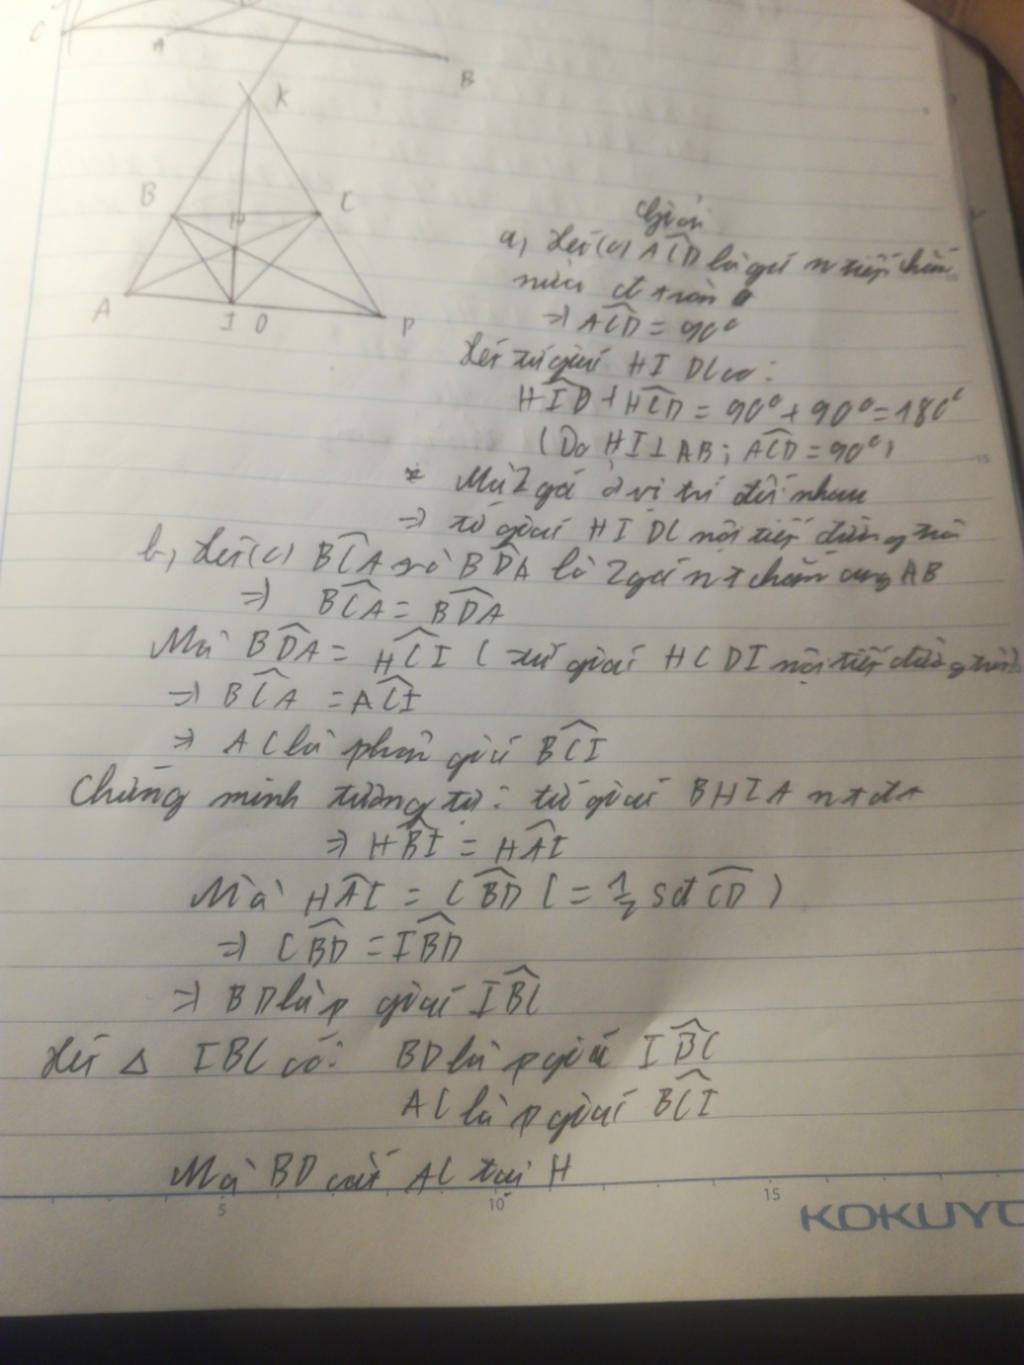 C
A
B
K
B
C
H
A
I O
D
Giải
a, Xét (O) ACD là góc n tiếp chắn
nửa đ tròn O
=> ACD = 90°
Xét tứ giác HIDC có:
HID + HCD = 90° + 90° = 180°
(Do HI ⊥ AB; ACD = 90°)
* Mà 2 góc ở vị trí đối nhau
=> tứ giác HIDC nội tiếp đường tròn
b, Xét (O) BCA và BDA là 2 góc nt chắn cung AB
=> BCA = BDA
Mà BDA = HCI (tứ giác HCDI nội tiếp đường tròn)
=> BCA = ACI
=> AC là phân giác BCI
Chứng minh tương tự: tứ giác BHIA nt đt
=> HBI = HAI
Mà HAI = CBD (= 1/2 sđ CD)
=> CBD = IBD
=> BD là p giác IBC
Xét Δ IBC có: BD là p giác IBC
AC là p giác BCI
Mà BD cắt AC tại H
5 10 15
KOKUYO